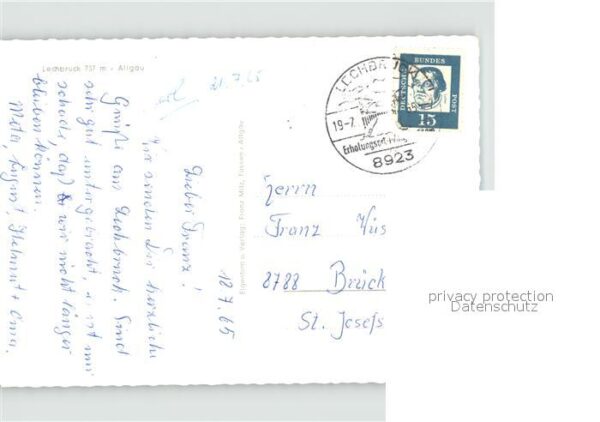 Lechbruck 737 m - Allgäu
21.7.65
18.7.65
Lieber Franz!
Wir senden Dir herzliche
Grüße aus Lechbruck. Sind
sehr gut untergebracht, nur
schade, daß wir nicht länger
bleiben können.
Helmut + Oma.
Eigentum u. Verlag: Franz Milz, Füssen - Allgäu
LECHBRUCK
19-7.
Erholungsort
8923
DEUTSCHE
BUNDES
POST
15
Herrn
Franz
8788 Brück
St. Josefs
privacy protection
Datenschutz